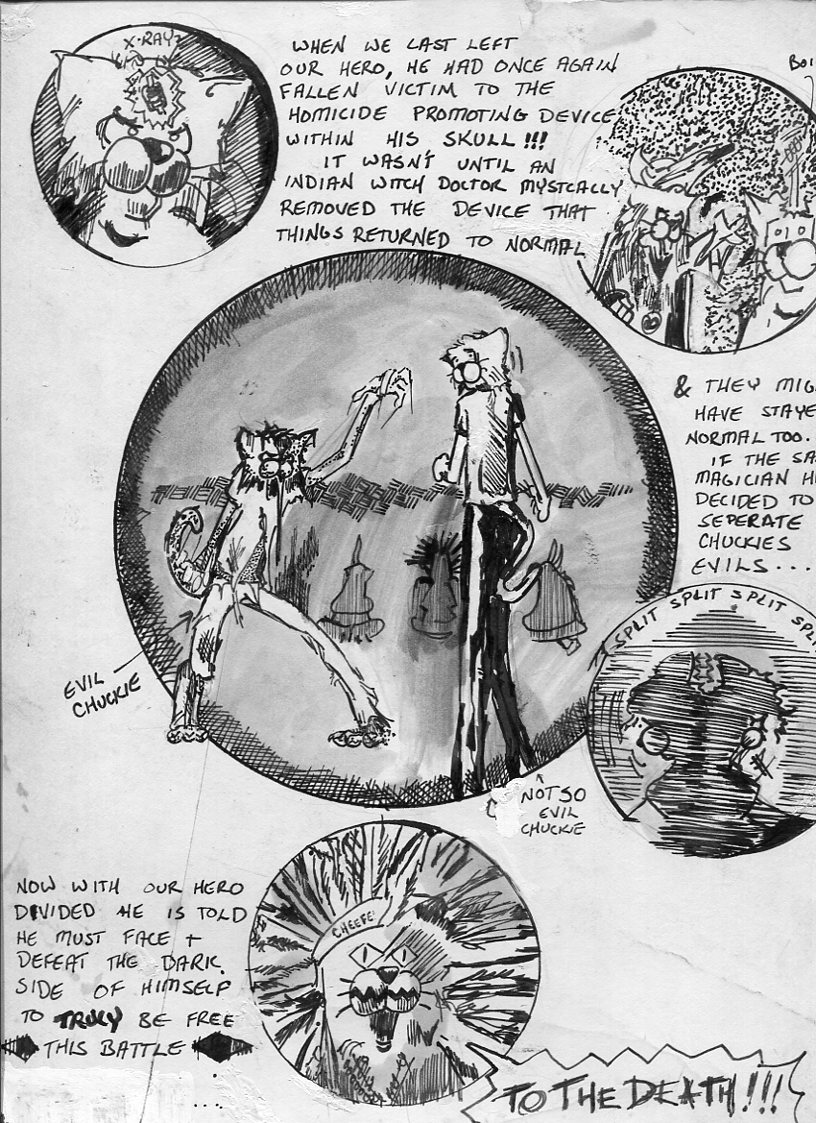 X-RAY
WHEN WE LAST LEFT
OUR HERO, HE HAD ONCE AGAIN
FALLEN VICTIM TO THE
HOMICIDE PROMOTING DEVICE
WITHIN HIS SKULL!!!
IT WASN'T UNTIL AN
INDIAN WITCH DOCTOR MYSTCALLY
REMOVED THE DEVICE THAT
THINGS RETURNED TO NORMAL
BOI
& THEY MIG
HAVE STAYE
NORMAL TOO.
IF THE SA
MAGICIAN H
DECIDED TO
SEPERATE
CHUCKIES
EVILS...
SPLIT SPLIT SPLIT SPLIT
EVIL
CHUCKIE
NOT SO
EVIL
CHUCKIE
NOW WITH OUR HERO
DIVIDED HE IS TOLD
HE MUST FACE +
DEFEAT THE DARK
SIDE OF HIMSELF
TO TRULY BE FREE
THIS BATTLE
...
CHEEFE
TO THE DEATH!!!